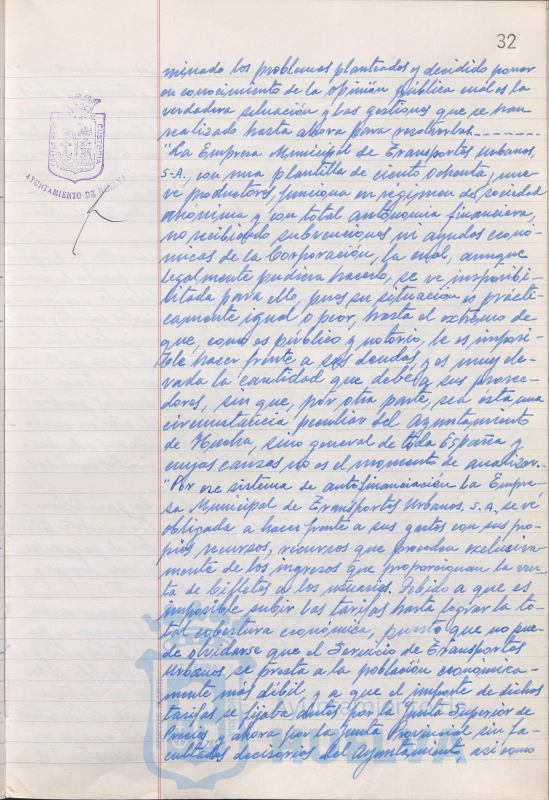 32
minado los problemas planteados y decidido poner
en conocimiento de la opinión pública cuál es la
verdadera situación y las gestiones que se han
realizado hasta ahora para resolverlos.-------
"La Empresa Municipal de Transportes Urbanos,
S.A., con una plantilla de ciento ochenta, nue-
ve productores, funciona en régimen de sociedad
anónima y con total autonomía financiera,
no recibiendo subvenciones ni ayudas econó-
micas de la Corporación, la cual, aunque
legalmente pudiera hacerlo, se ve imposibi-
litada para ello, pues su situación es prácti-
camente igual o peor, hasta el extremo de
que, como es público y notorio, le es imposi-
ble hacer frente a sus deudas y es muy ele-
vada la cantidad que debe a sus provee-
dores, sin que, por otra parte, sea ésta, una
circunstancia peculiar del Ayuntamiento
de Huelva, sino general de toda España y
cuyas causas no es el momento de analizar.-
"Por ese sistema de autofinanciación la Empre-
sa Municipal de Transportes Urbanos, S.A., se ve
obligada a hacer frente a sus gastos con sus pro-
pios recursos, recursos que proceden exclusiva-
mente de los ingresos que proporcionan la ven-
ta de billetes a los usuarios. Debido a que es
imposible subir las tarifas hasta lograr la to-
tal cobertura económica, puesto que no pue-
de olvidarse que el Servicio de Transportes
Urbanos se presta a la población económica-
mente más débil y a que el importe de dichas
tarifas se fijaba antes por la Junta Superior de
Precios y ahora por la Junta Provincial sin fa-
cultades decisorias del Ayuntamiento, así como
AYUNTAMIENTO DE HUELVA